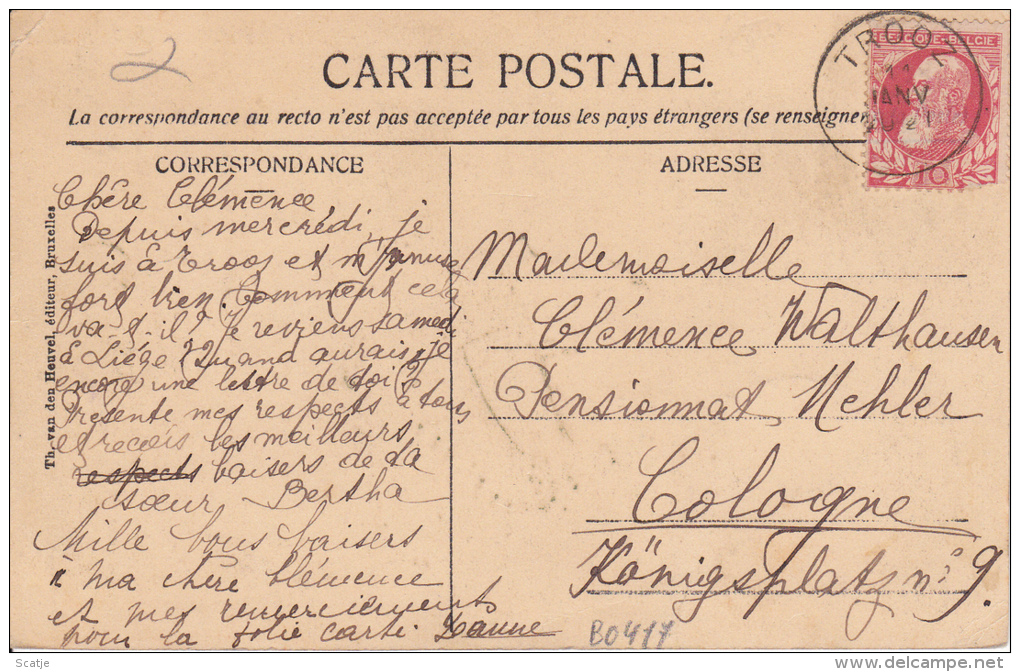 CARTE POSTALE.
La correspondance au recto n'est pas acceptée par tous les pays étrangers (se renseigner
CORRESPONDANCE
ADRESSE
TROOZ
JANV
BELGIQUE-BELGIE
10
Th. van den Heuvel, éditeur, Bruxelles
Chêre Clémence,
Depuis mercredi, je
suis à Trooz et m'amuse
fort bien. Comment cela
va-t-il? Je reviens samedi
à Liége? Quand aurais-je
encore une lettre de toi?
Présente mes respects à tous
et reçois les meilleurs
respects baisers de ta
sœur Bertha
Mille bons baisers
à ma chère Clémence
et mes remerciements
pour la jolie carte.
Mademoiselle
Clémence Walthausen
Pensionnat Mehler
Cologne
Königsplatz nº 9.
B0417
Scatje
delcampe.net